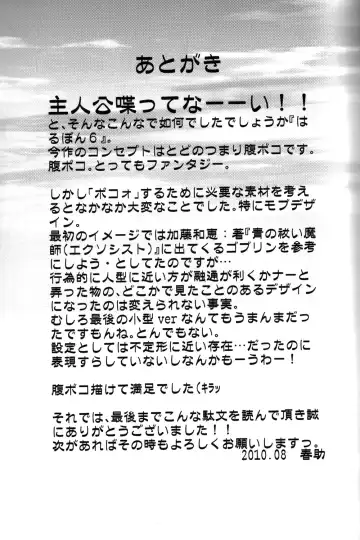 あとがき
主人公喋ってなーーい！！
と、そんなこんなで如何でしたでしょうか『はるぽん６』。
今作のコンセプトはとどのつまり腹ボコです。
腹ボコ。とってもファンタジー。
しかし「ボコォ」するために必要な素材を考え
るとなかなか大変なことでした。特にモブデザ
イン。
最初のイメージでは加藤和恵：著『青の祓い魔
師（エクソシスト）』に出てくるゴブリンを参考
にしよう・としてたのですが…
行為的に人型に近い方が融通が利くかナーと
弄った物の、どこかで見たことのあるデザイン
になったのは変えられない事実。
むしろ最後の小型verなんてもうまんまだっ
たですもんね。とんでもない。
設定としては不定形に近い存在…だったのに
表現すらしていないしなんかもーうわー！
腹ボコ描けて満足でした（ｷﾗｯ
それでは、最後までこんな駄文を読んで頂き誠
にありがとうございました！！
次があればその時もよろしくお願いしますっ。
2010.08　春助